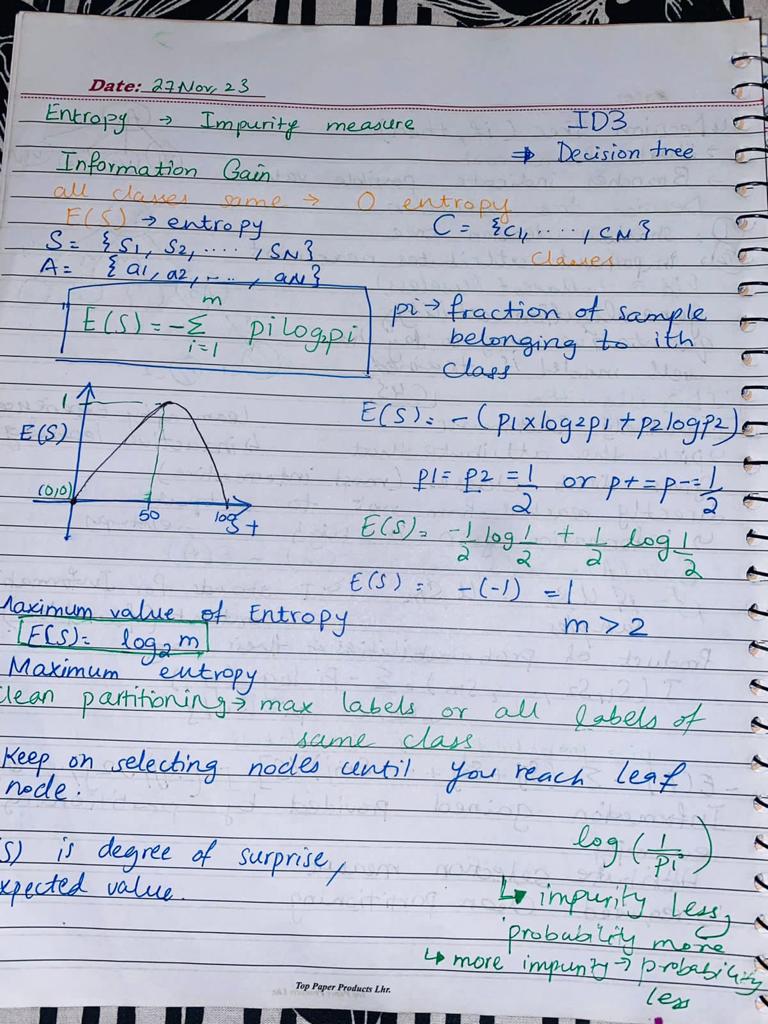 Date: 27 Nov, 23
Entropy → Impurity measure
ID3
⇒ Decision tree
Information Gain
all classes same → 0 entropy
E(S) → entropy
C = {c1, ...., cN}
classes
S = {s1, s2, ...., sN}
A = {a1, a2, ...., aN}
E(S) = -Σ pi log2pi
m
i=1
pi → fraction of sample
belonging to ith
class
1
E(S)
(0,0)
50
E(S) = -(p1xlog2p1 + p2logp2)
p1 = p2 = 1/2 or p+ = p- = 1/2
E(S) = -1/2 log 1/2 + 1/2 log 1/2
E(S) = -(-1) = 1
Maximum value of Entropy
m > 2
E(S) = log2m
Maximum entropy
clean partitioning → max labels or all labels of
same class
Keep on selecting nodes until you reach leaf
node.
log(1/pi)
S) is degree of surprise,
xpected value.
↳ impurity less,
probability more
↳ more impurity → probability
less
Top Paper Products Lhr.